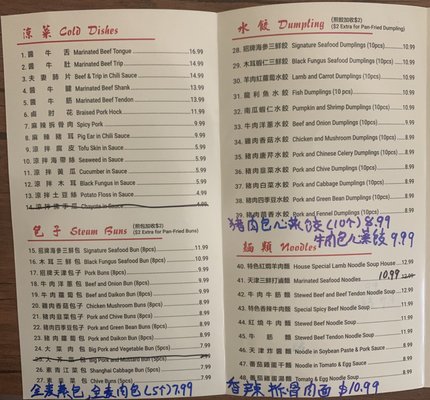 涼菜 Cold Dishes
1. 醬牛舌 Marinated Beef Tongue 16.99
2. 醬牛肚 Marinated Beef Trip 14.99
3. 夫妻肺片 Beef & Trip in Chili Sauce 14.99
4. 醬牛腱 Marinated Beef Shank 13.99
5. 醬牛筋 Marinated Beef Tendon 13.99
6. 鹵肘花 Braised Pork Hock 11.99
7. 麻辣拆骨肉 Spicy Pork 9.99
8. 麻辣豬耳 Pig Ear in Chili Sauce 9.99
9. 涼拌腐皮 Tofu Skin in Sauce
10. 涼拌海帶絲 Seaweed in Sauce
11. 涼拌黃瓜 Cucumber in Sauce
12. 涼拌木耳 Black Fungus in Sauce
13. 涼拌土豆絲 Potato Floss in Sauce
14. 涼拌佛手瓜 Chayote in Sauce 4.99
包子 Steam Buns (煎包加收$2)
($2 Extra for Pan-Fried Buns)
15. 招牌海參三鮮包 Signature Seafood Bun (8pcs)
16. 木耳三鮮包 Black Fungus Seafood Bun (8pcs)
17. 招牌天津包子 Pork Buns (8pcs)
18. 牛肉洋蔥包 Beef and Onion Bun (8pcs)
19. 牛肉蘿蔔包 Beef and Daikon Bun (8pcs)
20. 雞肉香菇包子 Chicken Mushroom Buns (8pcs)
21. 豬肉韭菜包子 Pork and Chive Buns (8pcs)
22. 豬肉四季豆包子 Pork and Green Bean Buns (8pcs)
23. 豬肉蘿蔔包子 Pork and Daikon Bun (8pcs)
24. 大菜肉包 Big Pork and Vegetable Bun (5pcs) 7.99
25. 大芥菜包 Big Pork and Mustard Bun (5pcs) 7.99
26. 素青江菜包 Shanghai Cabbage Bun (5pcs) 7.99
27. 素韭菜包子 Chive Buns (5pcs) 7.99
全麦菜包,全麦肉包(5个)7.99
水餃 Dumpling (煎餃加收$2)
($2 Extra for Pan-Fried Dumpling)
28. 招牌海參三鮮餃 Signature Seafood Dumplings (10pcs) 10.99
29. 木耳蝦仁三鮮餃 Black Fungus Seafood Dumplings (10pcs) 10.99
30. 羊肉紅蘿蔔水餃 Lamb and Carrot Dumplings (10pcs) 10.99
31. 龍利魚水餃 Fish Dumplings (10 pcs) 10.99
32. 南瓜蝦仁水餃 Pumpkin and Shrimp Dumplings (10pcs) 10.99
33. 牛肉洋蔥水餃 Beef and Onion Dumplings (10pcs) 9.99
34. 雞肉香菇水餃 Chicken and Mushroom Dumplings (10pcs) 8.99
35. 豬肉唐芹水餃 Pork and Chinese Celery Dumplings (10pcs) 8.99
36. 豬肉韭菜水餃 Pork and Chive Dumplings (10pcs) 8.99
37. 豬肉白菜水餃 Pork and Cabbage Dumplings (10pcs) 8.99
38. 豬肉四季豆水餃 Pork and Green Bean Dumplings (10pcs) 8.99
39. 豬肉茴香水餃 Pork and Fennel Dumplings (10pcs) 8.99
猪肉包心菜饺(10个)8.99
牛肉包心菜饺 9.99
麵類 Noodles
40. 特色紅燜羊肉麵 House Special Lamb Noodle Soup House 12.99
41. 天津三鮮打滷麵 Marinated Seafood Noodles 10.99
42. 牛肉牛筋麵 Stewed Beef and Beef Tendon Noodle Soup 12.99
43. 特色香辣牛肉麵 Special Spicy Beef Noodle Soup
44. 紅燒牛肉麵 Stewed Beef Noodle Soup
45. 牛筋麵 Stewed Beef Tendon Noodle Soup
46. 天津炸醬麵 Noodle in Soybean Paste & Pork Sauce
47. 番茄雞蛋麵 Noodle in Tomato & Egg Sauce
48. 番茄雞蛋湯麵 Tomato & Egg Noodle Soup
香辣拆骨肉面 $10.99